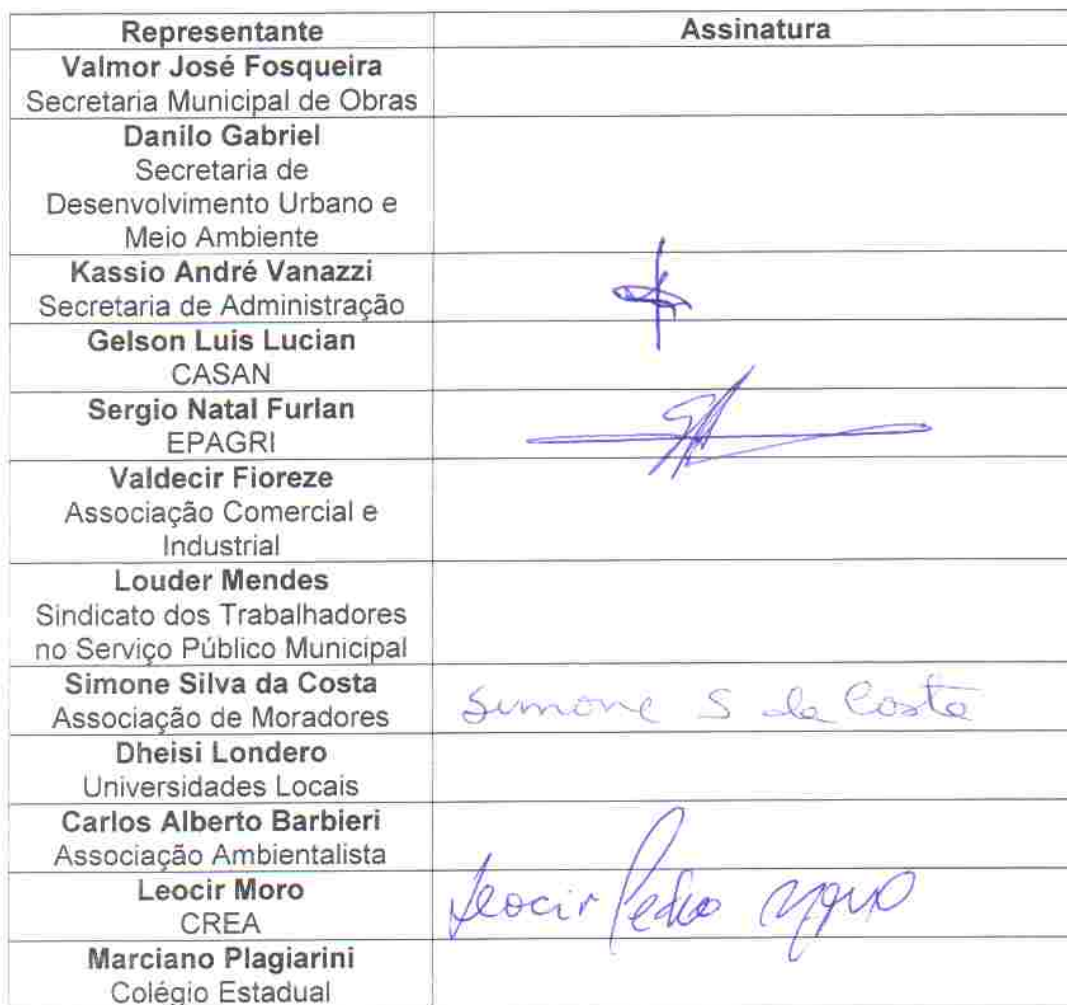 Representante Assinatura
Valmor José Fosqueira
Secretaria Municipal de Obras
Danilo Gabriel
Secretaria de
Desenvolvimento Urbano e
Meio Ambiente
Kassio André Vanazzi
Secretaria de Administração
Gelson Luis Lucian
CASAN
Sergio Natal Furlan
EPAGRI
Valdecir Fioreze
Associação Comercial e
Industrial
Louder Mendes
Sindicato dos Trabalhadores
no Serviço Público Municipal
Simone Silva da Costa
Associação de Moradores
Simone S da Costa
Dheisi Londero
Universidades Locais
Carlos Alberto Barbieri
Associação Ambientalista
Leocir Moro
CREA
Leocir Pedro Moro
Marciano Plagiarini
Colégio Estadual